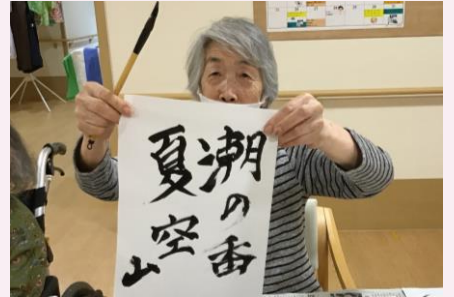 潮の香
夏空
山